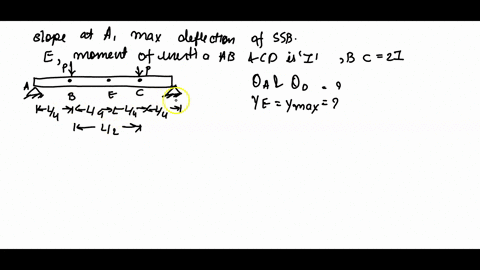 slope at A, max deflection of SSB.
E, moment of inertia AB & CD is 'I', BC = 2I
P P
A
B E C
L/4 L/4 L/4 L/4
L/2
θA & θD = ?
YE = Ymax = ?